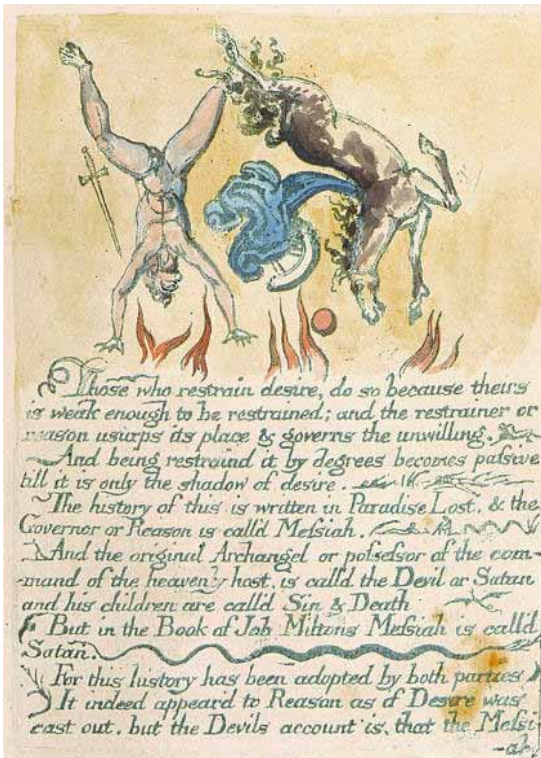 Those who restrain desire, do so because theirs
is weak enough to be restrained; and the restrainer or
reason usurps its place & governs the unwilling.
And being restraind it by degrees becomes passive
till it is only the shadow of desire.
The history of this is written in Paradise Lost, & the
Governor or Reason is call'd Messiah.
And the original Archangel or possessor of the com-
-mand of the heavenly host, is calld the Devil or Satan
and his children are call'd Sin & Death
But in the Book of Job Miltons Messiah is call'd
Satan.
For this history has been adopted by both parties
It indeed appear'd to Reason as if Desire was
cast out, but the Devils account is, that the Messi-
-ah